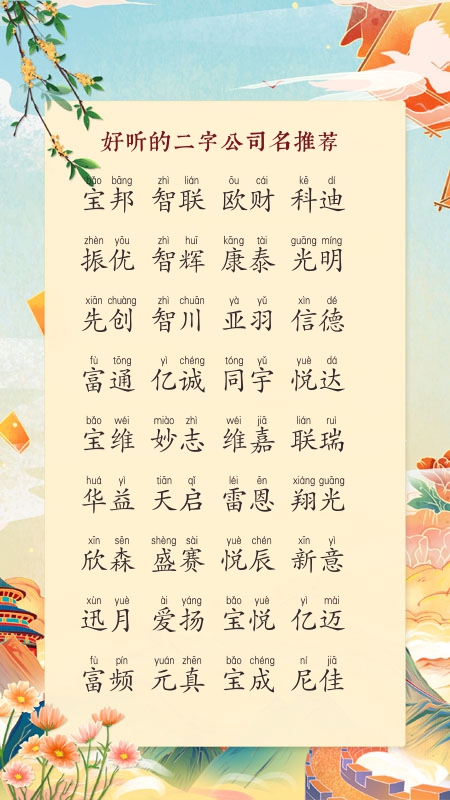 好听的二字公司名推荐
bǎo bāng zhì lián ōu cái kē dí
宝邦 智联 欧财 科迪
zhèn yōu zhì huī kāng tài guāng míng
振优 智辉 康泰 光明
xiān chuàng zhì chuān yà yǔ xìn dé
先创 智川 亚羽 信德
fù tōng yì chéng tóng yǔ yuè dá
富通 亿诚 同宇 悦达
bǎo wéi miào zhì wéi jiā lián ruì
宝维 妙志 维嘉 联瑞
huá yì tiān qǐ léi ēn xiáng guāng
华益 天启 雷恩 翔光
xīn sēn shèng sài yuè chén xīn yì
欣森 盛赛 悦辰 新意
xùn yuè ài yáng bǎo yuè yì mài
迅月 爱扬 宝悦 亿迈
fù pín yuán zhēn bǎo chéng ní jiā
富频 元真 宝成 尼佳